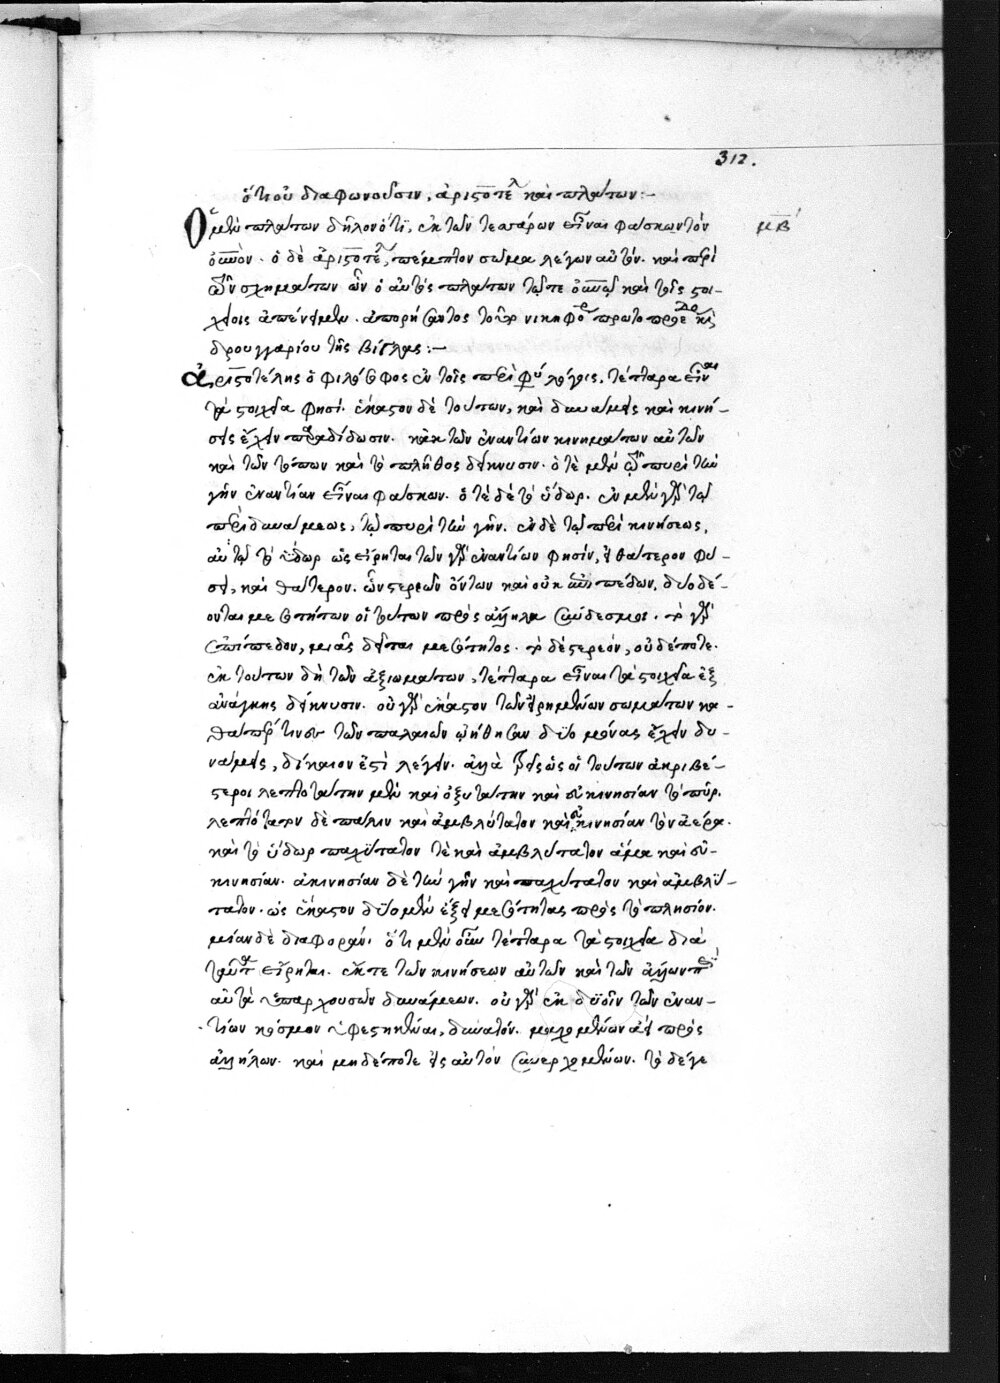 312.
ὅτι οὐ διαφωνοῦσιν, ἀριστοτέλ καὶ πλάτων :-
Ὁ μὲν πλάτων δηλονότι, ἐκ τῶν τεσσάρων εἶναι φάσκων τὸν
μβ
οὐνον. ὁ δὲ ἀριστοτέλ, πέμπτον σῶμα λέγων αὐτόν. καὶ περὶ
τῶν σχημάτων ὧν ὁ αὐτὸς πλάτων τῶτε οὐνῶ καὶ τοῖς στοι-
χείοις ἀπένειμεν. ἀπορήσαντος τοῦ νικηφόρ πρωτοπροέδρ καὶ
δρουγγαρίου τῆς βίγλας :-
Ἀριστοτέλης ὁ φιλόσοφος ἐν τοῖς περὶ λόγοις, τέτταρα εἶναι
τὰ στοιχεῖα φησί. ἕκαστον δὲ τούτων, καὶ δυνάμεις καὶ κινή-
σεις ἔχειν παραδίδωσιν. κἀκ τῶν ἐναντίων κινημάτων αὐτῶν
καὶ τῶν τόπων καὶ τὸ πλῆθος δείκνυσιν. ὁτὲ μὲν τῶ πυρὶ τὴν
γῆν ἐναντίαν εἶναι φάσκων. ὁτὲ δὲ τὸ ὕδωρ. ἐν μὲν γὰρ τῶ
περὶ δυνάμεως, τῶ πυρὶ τὴν γῆν. ἐν δὲ τῶ περὶ κινήσεως,
αὐτῶ τὸ ὕδωρ ὡς εἴρηται τῶν γὰρ ἐναντίων φησίν, εἰ θάτερον φύ-
σει, καὶ θάτερον. τῶν στερεῶν ὄντων καὶ οὐκ ἐπιπέδων, δύο δέ-
ονται μεσοτήτων οἱ τούτων πρὸς ἄλληλα σύνδεσμοι. τὸ γὰρ
ἐπίπεδον, μιᾶς δεῖται μεσότητος. τὸ δὲ στερεόν, οὐδέποτε.
ἐκ τούτων δὴ τῶν ἀξιωμάτων, τέτταρα εἶναι τὰ στοιχεῖα ἐξ
ἀνάγκης δείκνυσιν. οὐ γὰρ ἕκαστον τῶν εἰρημένων σωμάτων κα-
θάπερ τινὲς τῶν παλαιῶν ᾠήθησαν δύο μόνας ἔχειν δυ-
νάμεις, δίκαιον ἐστὶ λέγειν. ἀλλὰ τρεῖς ὡς οἱ τούτων ἀκριβέ-
στεροι λεπτοτάτην μὲν καὶ ὀξυτάτην καὶ εὐκινησίαν τὸ πῦρ.
λεπτότατον δὲ πάλιν καὶ ἀμβλύτατον καὶ εὐκινησίαν τὸν ἀέρα.
καὶ τὸ ὕδωρ παχύτατον τὲ καὶ ἀμβλύτατον ἅμα καὶ εὐ-
κινησίαν. ἀκινησίαν δὲ τὴν γῆν καὶ παχύτατον καὶ ἀμβλύ-
τατον. ὡς ἕκαστον δύο μὲν ἕξει μεσότητας πρὸς τὸ πλησίον.
μίαν δὲ διαφοράν. ὅτι μὲν οὖν τέτταρα τὰ στοιχεῖα διὰ
ταῦτ εἴρηται. ἔκ τε τῶν κινήσεων αὐτῶν καὶ τῶν ἄλλων περὶ
αὐτὰ ὑπαρχουσῶν δυνάμεων. οὐ γὰρ ἐκ δυοῖν τῶν ἐναν-
τίων κόσμον ὑφεστηκέναι, δυνατόν. μαχομένων ἀεὶ πρὸς
ἀλλήλων. καὶ μηδέποτε εἰς αὐτὸν συνερχομένων. τὸ δέ γε